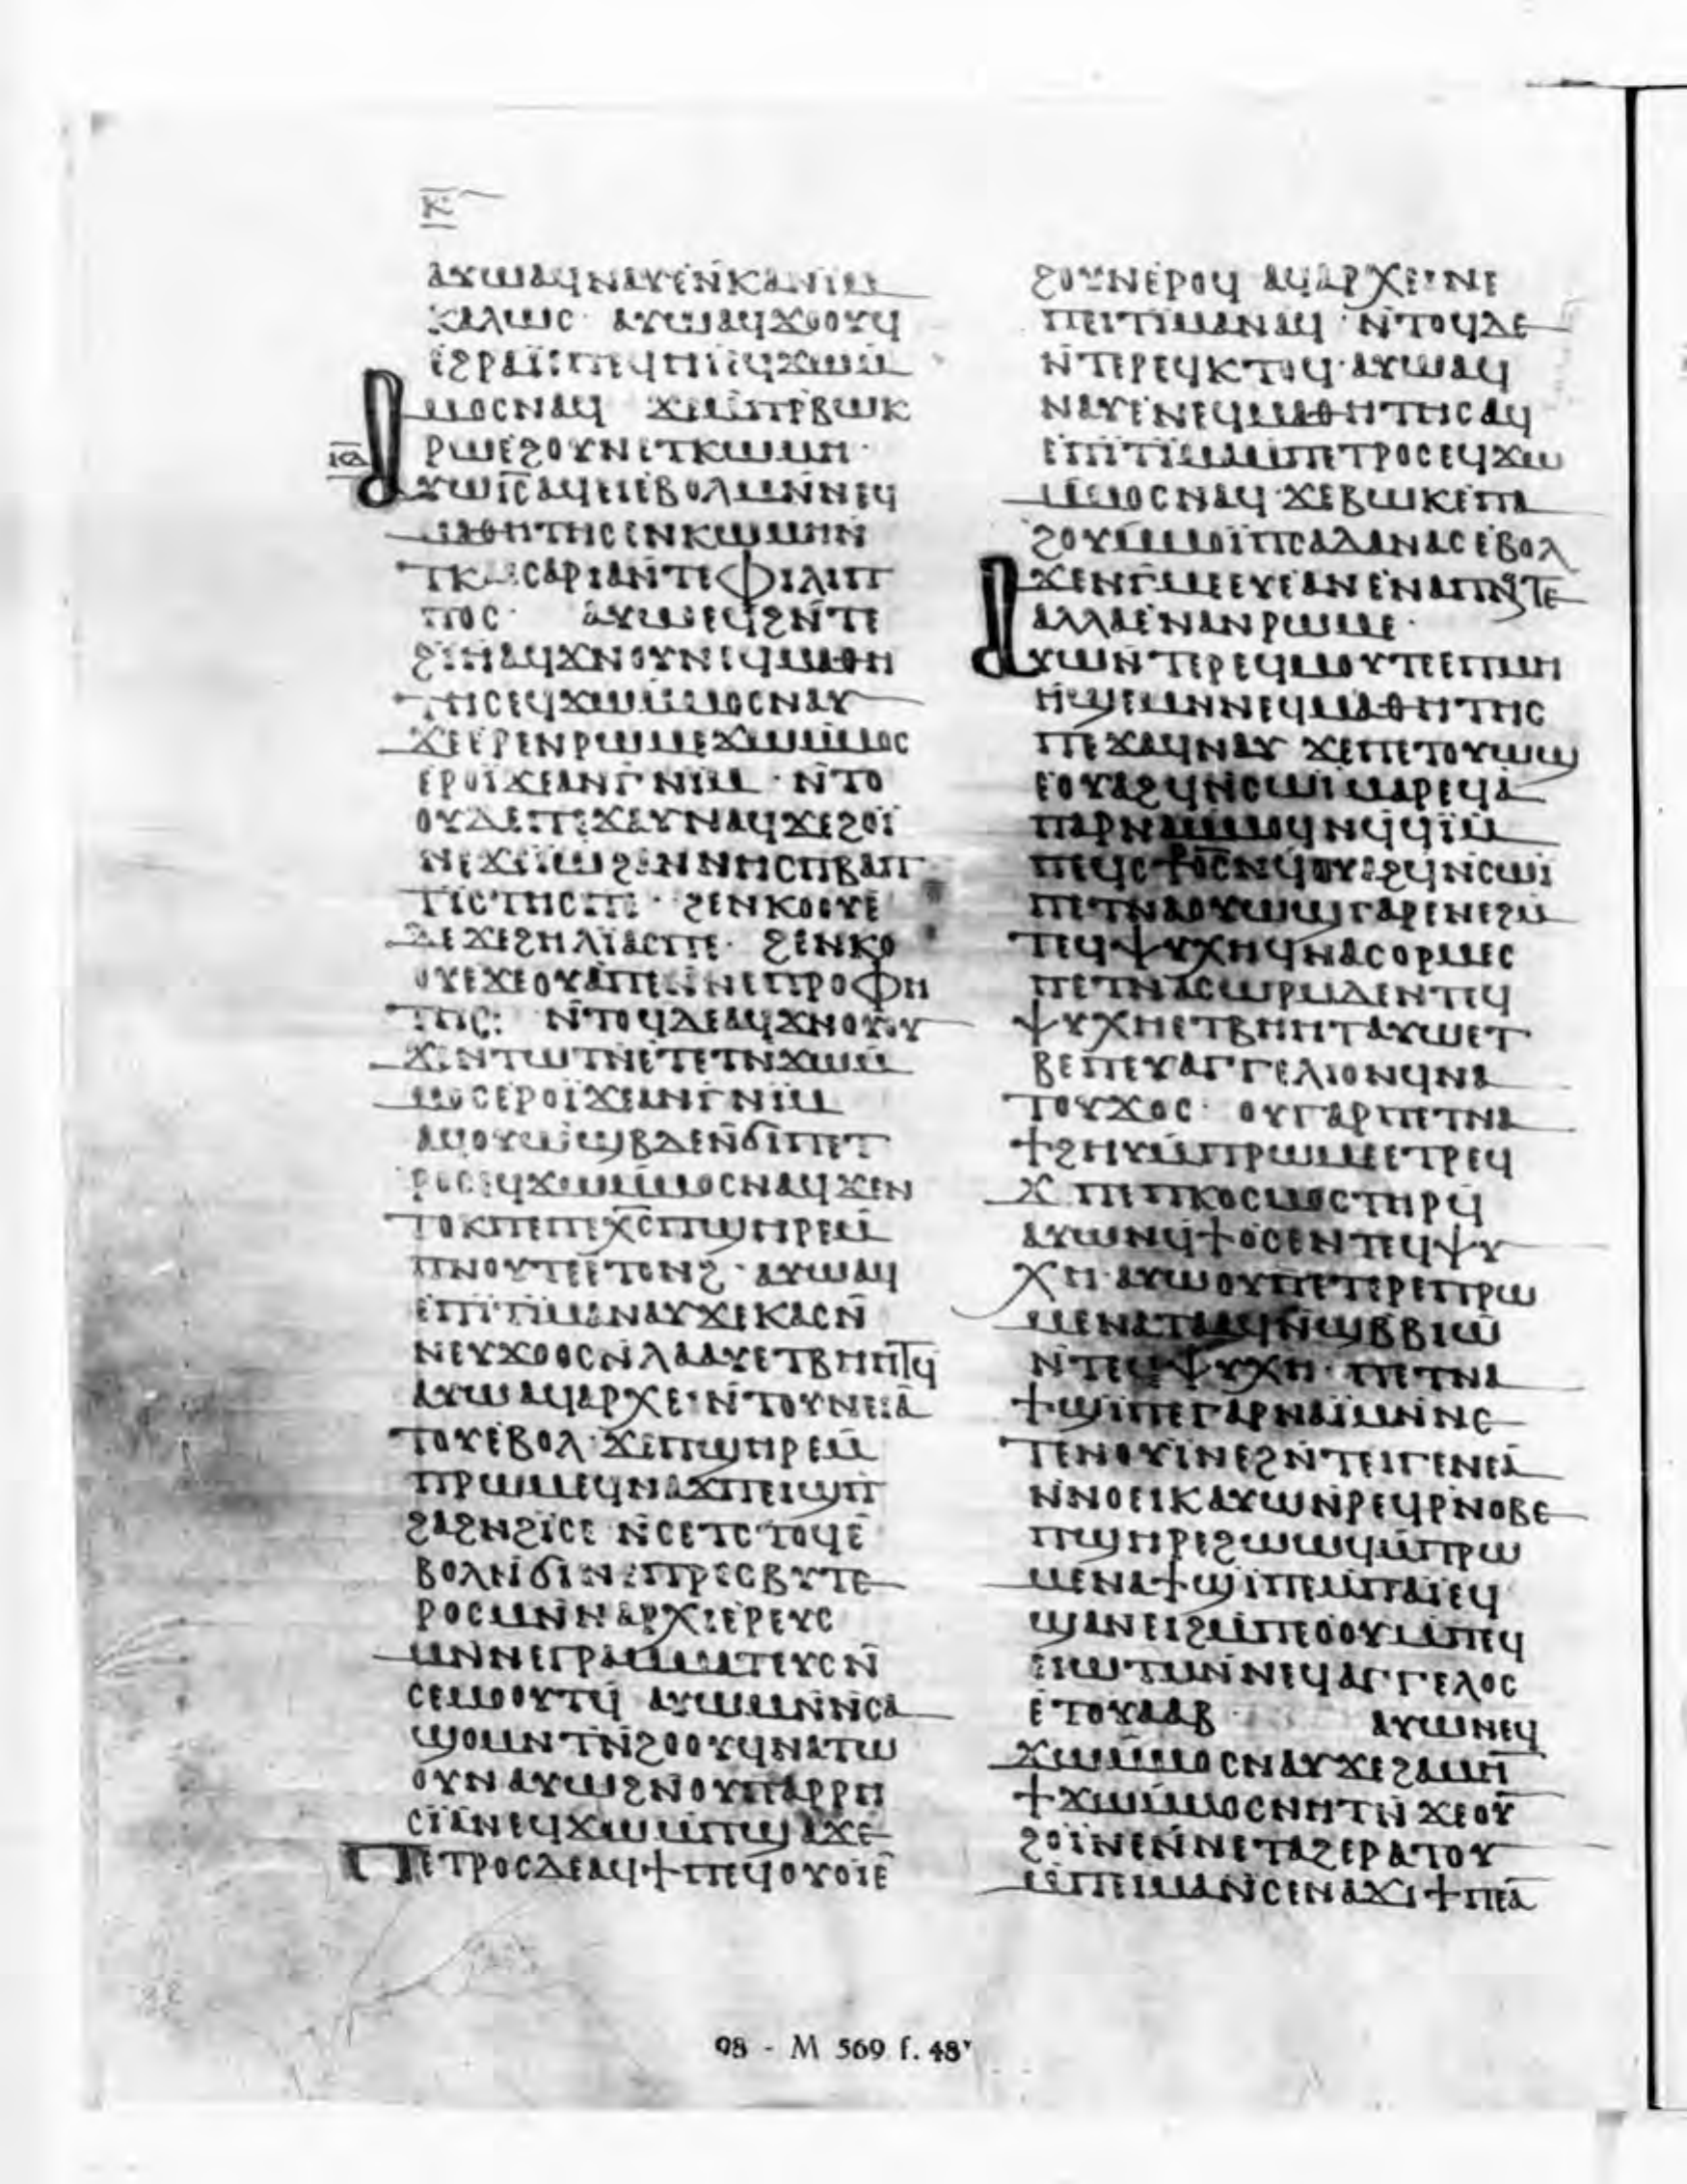 ⲕ̅
ⲁⲩⲱⲁϥⲛⲁⲩⲉⲛⲕⲁⲛⲓⲙ
ⲕⲁⲗⲱⲥ· ⲁⲩⲱⲁϥϫⲟⲟⲩϥ
ⲉϩⲣⲁⲓ̈ⲉⲡⲉϥⲏⲓⲉϥϫⲱⲙ̄
ⲙⲟⲥⲛⲁϥ ϫⲉⲙ̄ⲡⲣ̄ⲃⲱⲕ
ⲣⲱⲉϩⲟⲩⲛⲉⲧⲕⲱⲙⲏ·
ⲓⲁ̅
ⲁⲩⲱⲓ̅ⲥ̅ⲁϥⲉⲓⲉⲃⲟⲗⲙⲛ̄ⲛⲉϥ
ⲙⲁⲑⲏⲧⲏⲥⲉⲛⲕⲱⲙⲏⲛ̄
ⲧⲕⲉⲥⲁⲣⲓⲁⲛ̄ⲧⲉⲫⲓⲗⲓⲡ
ⲡⲟⲥ· ⲁⲩⲱⲉϥϩⲛ̄ⲧⲉ
ϩⲓⲏⲁϥϫⲛⲟⲩⲛⲉϥⲙⲁⲑⲏ
ⲧⲏⲥⲉϥϫⲱⲙ̄ⲙⲟⲥⲛⲁⲩ
ϫⲉⲉⲣⲉⲛⲣⲱⲙⲉϫⲱⲙ̄ⲙⲟⲥ
ⲉⲣⲟⲓ̈ϫⲉⲁⲛⲅ̄ⲛⲓⲙ· ⲛ̄ⲧⲟ
ⲟⲩⲇⲉⲡⲉϫⲁⲩⲛⲁϥϫⲉϩⲟⲓ̈
ⲛⲉϫⲉⲓ̈ⲱϩⲁⲛⲛⲏⲥⲡⲃⲁⲡ
ⲧⲓⲥⲧⲏⲥⲡⲉ· ϩⲉⲛⲕⲟⲟⲩⲉ
ⲇⲉϫⲉϩⲏⲗⲓ̈ⲁⲥⲡⲉ· ϩⲉⲛⲕⲟ
ⲟⲩⲉϫⲉⲟⲩⲁⲡⲉⲛ̄ⲛⲉⲡⲣⲟⲫⲏ
ⲧⲏⲥ: ⲛ̄ⲧⲟϥⲇⲉⲁϥϫⲛⲟⲩⲟⲩ
ϫⲉⲛⲧⲱⲧⲛ̄ⲉⲧⲉⲧⲛ̄ϫⲱⲙ̄
ⲙⲟⲥⲉⲣⲟⲓ̈ϫⲉⲁⲛⲅ̄ⲛⲓⲙ
ⲁϥⲟⲩⲱϣⲃ̄ⲇⲉⲛ̄ϭⲓⲡⲉⲧ
ⲣⲟⲥⲉϥϫⲱⲙ̄ⲙⲟⲥⲛⲁϥϫⲉⲛ
ⲧⲟⲕⲡⲉⲡⲉⲭ̅ⲥ̅ⲡϣⲏⲣⲉⲙ̄
ⲡⲛⲟⲩⲧⲉⲉⲧⲟⲛϩ· ⲁⲩⲱⲁϥ
ⲉⲡⲓⲧⲓⲙⲁⲛⲁⲩϫⲉⲕⲁⲥⲛ̄
ⲛⲉⲩϫⲟⲟⲥⲛ̄ⲗⲁⲁⲩⲉⲧⲃⲏⲏⲧϥ̄
ⲁⲩⲱⲁϥⲁⲣⲭⲉⲓⲛ̄ⲧⲟⲩⲛⲉⲓⲁ̄
ⲧⲟⲩⲉⲃⲟⲗ· ϫⲉⲡϣⲏⲣⲉⲙ̄
ⲡⲣⲱⲙⲉϥⲛⲁϫⲡⲉⲓϣⲡ
ϩⲁϩⲛ̄ϩⲓⲥⲉ ⲛ̄ⲥⲉⲧⲥⲧⲟϥⲉ
ⲃⲟⲗⲛ̄ϭⲓⲛⲉⲡⲣⲉⲥⲃⲩⲧⲉ
ⲣⲟⲥⲙⲛ̄ⲛⲁⲣⲭⲓⲉⲣⲉⲩⲥ
ⲙⲛⲛⲉⲅⲣⲁⲙⲙⲁⲧⲉⲩⲥⲛ̄
ⲥⲉⲙⲟⲟⲩⲧϥ̄ ⲁⲩⲱⲙⲛ̄ⲛ̄ⲥⲁ
ϣⲟⲙⲛⲧⲛ̄ϩⲟⲟⲩϥⲛⲁⲧⲱ
ⲟⲩⲛ ⲁⲩⲱϩⲛ̄ⲟⲩⲡⲁⲣⲣⲏ
ⲥⲓⲁⲛⲉϥϫⲱⲙ̄ⲡϣⲁϫⲉ
ⲡⲉⲧⲣⲟⲥⲇⲉⲁϥϯⲡⲉϥⲟⲩⲟⲓⲉ
ϩⲟⲩⲛⲉⲣⲟϥ ⲁϥⲁⲣⲭⲉⲓⲛⲉ
ⲡⲉⲓⲧⲓⲙⲁⲛⲁϥ· ⲛ̄ⲧⲟϥⲇⲉ
ⲛ̄ⲧⲉⲣⲉϥⲕⲧⲟϥ· ⲁⲩⲱⲁϥ
ⲛⲁⲩⲉⲛⲉϥⲙⲁⲑⲏⲧⲏⲥⲁϥ
ⲉⲡⲓⲧⲓⲙⲁⲙ̄ⲡⲉⲧⲣⲟⲥⲉϥϫⲱ
ⲙ̄ⲙⲟⲥⲛⲁϥ· ϫⲉⲃⲱⲕⲉⲡⲁ
ϩⲟⲩⲙ̄ⲙⲟⲓ̈ⲡⲥⲁⲇⲁⲛⲁⲥⲉⲃⲟⲗ
ϫⲉⲛⲅ̄ⲙⲉⲉⲩⲉⲁⲛⲉⲛⲁⲡⲛⲟⲩⲧⲉ
ⲁⲗⲗⲁⲉⲛⲁⲛⲣⲱⲙⲉ·
ⲁⲩⲱⲛ̄ⲧⲉⲣⲉϥⲙⲟⲩⲧⲉⲉⲡⲙⲏ
ⲏϣⲉⲙⲛⲛⲉϥⲙⲁⲑⲏⲧⲏⲥ
ⲡⲉϫⲁϥⲛⲁⲩ ϫⲉⲡⲉⲧⲟⲩⲱϣ
ⲉⲟⲩⲁϩϥⲛ̄ⲥⲱⲓⲙⲁⲣⲉϥⲁ
ⲡⲁⲣⲛⲁⲙ̄ⲙⲟϥⲛϥ̄ϥⲓⲙ̄
ⲡⲉϥⲥ⳨ⲟ̅ⲥ̅ⲛϥ̄ⲟⲩⲁϩϥⲛ̄ⲥⲱⲓ
ⲡⲉⲧⲛⲁⲟⲩⲱϣⲅⲁⲣⲉⲛⲉϩⲙ̄
ⲧⲉϥⲯⲩⲭⲏϥⲛⲁⲥⲟⲣⲙⲉⲥ
ⲡⲉⲧⲛⲁⲥⲱⲣⲙⲇⲉⲛⲧⲉϥ
ⲯⲩⲭⲏⲉⲧⲃⲏⲏⲧⲁⲩⲱⲉⲧ
ⲃⲉⲡⲉⲩⲁⲅⲅⲉⲗⲓⲟⲛϥⲛⲁ
ⲧⲟⲩϫⲟⲥ· ⲟⲩⲅⲁⲣⲡⲉⲧⲛⲁ
ϯϩⲏⲩⲙ̄ⲡⲣⲱⲙⲉⲉⲧⲣⲉϥ
ϫ ⲡⲉⲡⲕⲟⲥⲙⲟⲥⲧⲏⲣϥ̄
ⲁⲩⲱⲛϥ̄ϯⲟⲥⲉⲛⲧⲉϥⲯⲩ
ⲭⲏ· ⲁⲩⲱⲟⲩⲡⲉⲧⲉⲣⲉⲡⲣⲱ
ⲙⲉⲛⲁⲧⲁⲁϥⲛ̄ϣⲃⲃⲓⲱ
ⲛ̄ⲧⲉϥⲯⲩⲭⲏ· ⲡⲉⲧⲛⲁ
ϯϣⲓⲡⲉⲅⲁⲣⲛⲁⲓ̈ⲙⲛ̄ⲛⲥ
ⲧⲉⲛⲟⲩⲓ̈ⲛⲉϩⲛ̄ⲧⲉⲓⲅⲉⲛⲉⲁ
ⲛⲛⲟⲉⲓⲕⲁⲩⲱⲛ̄ⲣⲉϥⲣ̄ⲛⲟⲃⲉ
ⲡϣⲏⲣⲉϩⲱⲱϥⲙ̄ⲡⲣⲱ
ⲙⲉⲛⲁϯϣⲓⲡⲉⲙ̄ⲡⲁⲓ̈ⲉϥ
ϣⲁⲛⲉⲓϩⲙ̄ⲡⲉⲟⲟⲩⲙ̄ⲡⲉϥ
ⲉⲓⲱⲧⲙⲛ̄ⲛⲉϥⲁⲅⲅⲉⲗⲟⲥ
ⲉⲧⲟⲩⲁⲁⲃ· ⲁⲩⲱⲛⲉϥ
ϫⲱⲙ̄ⲙⲟⲥⲛⲁⲩϫⲉϩⲁⲙⲏ̄
ϯϫⲱⲙ̄ⲙⲟⲥⲛⲏⲧⲛ̄ ϫⲉⲟⲩ
ϩⲟⲓ̈ⲛⲉⲛ̄ⲛⲉⲧⲁϩⲉⲣⲁⲧⲟⲩ
ⲙ̄ⲡⲉⲓⲙⲁⲛ̄ⲥⲉⲛⲁϫⲓϯⲡⲉⲁ̄
98 - M 569 f. 48ᵛ